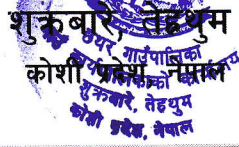 शुक्रबारे, तेह्रथुम
कोशी प्रदेश, नेपाल
छथर गाउँपालिका
गाउँ कार्यपालिकाको कार्यालय
शुक्रबारे, तेह्रथुम
कोशी प्रदेश, नेपाल